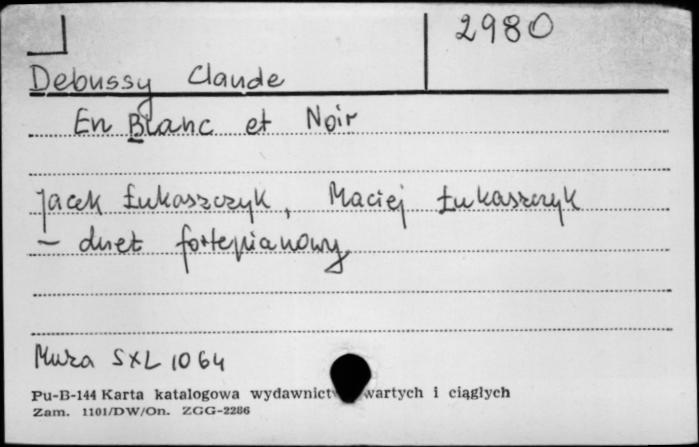 2980
Debussy Claude
En Blanc et Noir
Jacek Łukaszczyk, Maciej Łukaszczyk
— duet fortepianowy
Muza SXL 1064
Pu-B-144 Karta katalogowa wydawnict wartych i ciągłych
Zam. 1101/DW/On. ZGG-2286